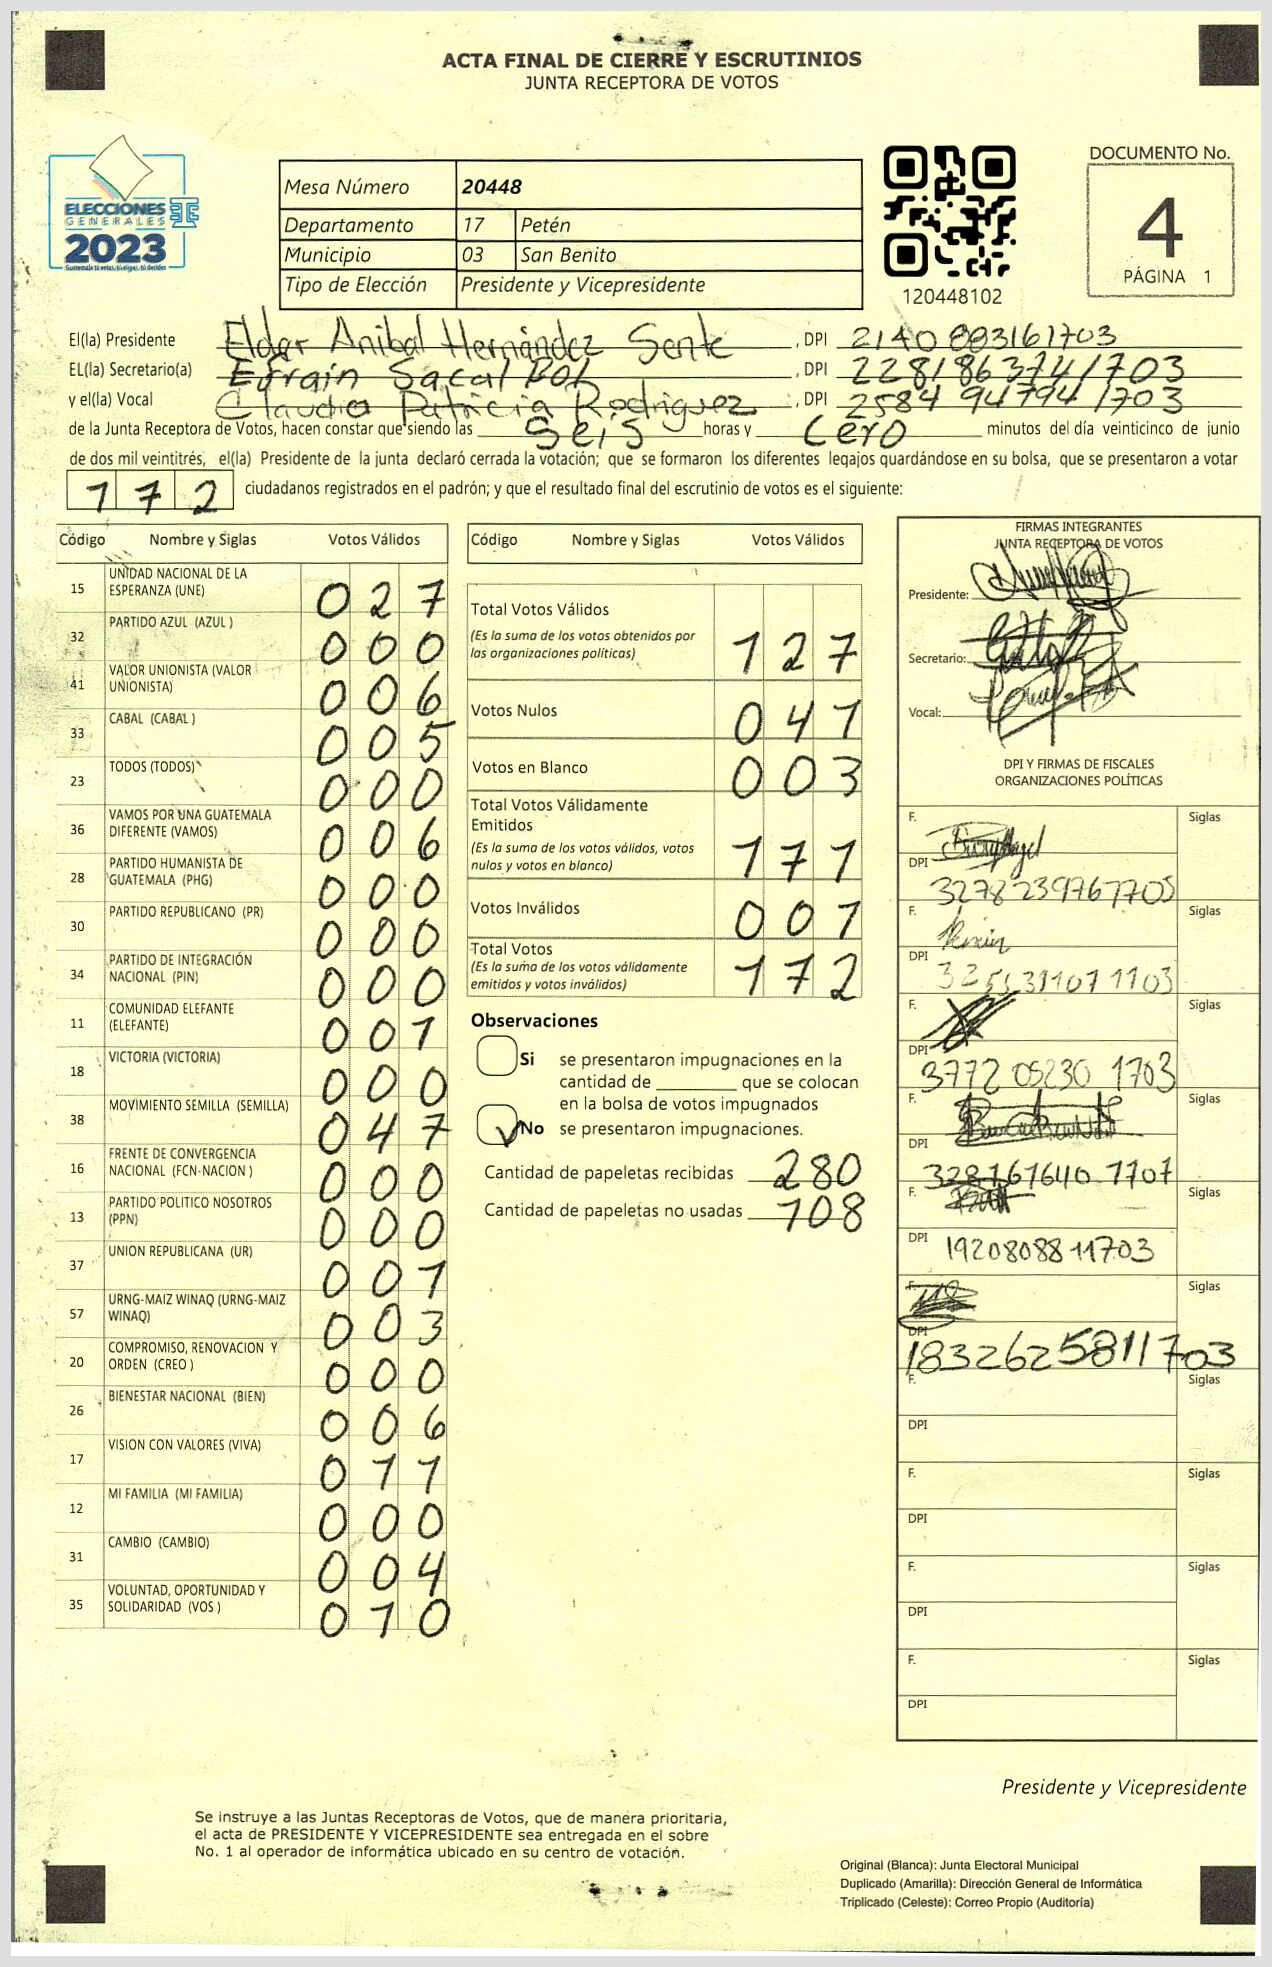 ACTA FINAL DE CIERRE Y ESCRUTINIOS
JUNTA RECEPTORA DE VOTOS
ELECCIONES
GENERALES
2023
Mesa Número 20448
Departamento 17 Petén
Municipio 03 San Benito
Tipo de Elección Presidente y Vicepresidente
120448102
DOCUMENTO No.
4
PÁGINA 1
El(la) Presidente Elder Anibal Hernández Sente, DPI 2140 883161703
EL(la) Secretario(a) Efrain Sacal Bol, DPI 2281863741703
y el(la) Vocal Claudia Patricia Rodriguez, DPI 2584 94794 1703
de la Junta Receptora de Votos, hacen constar que siendo las Seis horas y Cero minutos del día veinticinco de junio
de dos mil veintitrés, el(la) Presidente de la junta declaró cerrada la votación; que se formaron los diferentes legajos quardándose en su bolsa, que se presentaron a votar
172 ciudadanos registrados en el padrón; y que el resultado final del escrutinio de votos es el siguiente:
Código Nombre y Siglas Votos Válidos
15 UNIDAD NACIONAL DE LA ESPERANZA (UNE) 027
32 PARTIDO AZUL (AZUL ) 000
41 VALOR UNIONISTA (VALOR UNIONISTA) 006
33 CABAL (CABAL ) 005
23 TODOS (TODOS) 000
36 VAMOS POR UNA GUATEMALA DIFERENTE (VAMOS) 006
28 PARTIDO HUMANISTA DE GUATEMALA (PHG) 000
30 PARTIDO REPUBLICANO (PR) 000
34 PARTIDO DE INTEGRACIÓN NACIONAL (PIN) 000
11 COMUNIDAD ELEFANTE (ELEFANTE) 001
18 VICTORIA (VICTORIA) 000
38 MOVIMIENTO SEMILLA (SEMILLA) 047
16 FRENTE DE CONVERGENCIA NACIONAL (FCN-NACION ) 000
13 PARTIDO POLITICO NOSOTROS (PPN) 000
37 UNION REPUBLICANA (UR) 001
57 URNG-MAIZ WINAQ (URNG-MAIZ WINAQ) 003
20 COMPROMISO, RENOVACION Y ORDEN (CREO ) 000
26 BIENESTAR NACIONAL (BIEN) 006
17 VISION CON VALORES (VIVA) 011
12 MI FAMILIA (MI FAMILIA) 000
31 CAMBIO (CAMBIO) 004
35 VOLUNTAD, OPORTUNIDAD Y SOLIDARIDAD (VOS ) 010
Código Nombre y Siglas Votos Válidos
Total Votos Válidos
(Es la suma de los votos obtenidos por
las organizaciones políticas) 127
Votos Nulos 041
Votos en Blanco 003
Total Votos Válidamente
Emitidos
(Es la suma de los votos válidos, votos
nulos y votos en blanco) 171
Votos Inválidos 001
Total Votos
(Es la suma de los votos válidamente
emitidos y votos inválidos) 172
Observaciones
Si se presentaron impugnaciones en la
cantidad de ________ que se colocan
en la bolsa de votos impugnados
No se presentaron impugnaciones.
Cantidad de papeletas recibidas 280
Cantidad de papeletas no usadas 108
FIRMAS INTEGRANTES
JUNTA RECEPTORA DE VOTOS
Presidente:
Secretario:
Vocal:
DPI Y FIRMAS DE FISCALES
ORGANIZACIONES POLÍTICAS
F. Siglas
DPI 3278239761703
F. Siglas
DPI
F. Siglas
DPI 3772 05230 1703
F. Siglas
DPI 328767640 1707
F. Siglas
DPI 1920808811703
F. Siglas
DPI 1832625811703
F. Siglas
DPI
F. Siglas
DPI
F. Siglas
DPI
F. Siglas
DPI
Presidente y Vicepresidente
Se instruye a las Juntas Receptoras de Votos, que de manera prioritaria,
el acta de PRESIDENTE Y VICEPRESIDENTE sea entregada en el sobre
No. 1 al operador de informática ubicado en su centro de votación.
Original (Blanca): Junta Electoral Municipal
Duplicado (Amarilla): Dirección General de Informática
Triplicado (Celeste): Correo Propio (Auditoría)